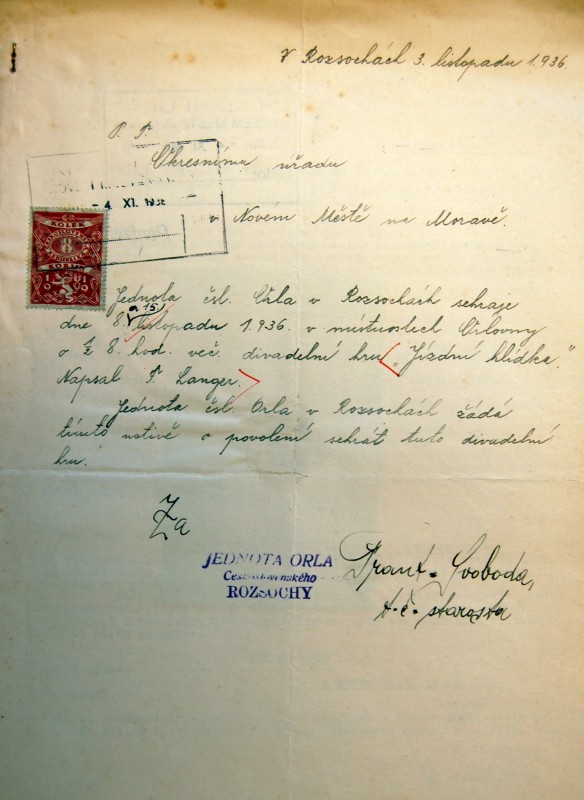 V Rozsochách 3. listopadu 1.936.
P. T.
Okresnímu úřadu
- 4. XI. 1936
v Novém Městě na Moravě.
KOLEK
8
1919
Jednota čsl. Orla v Rozsochách sehraje
a 15.
dne 8. listopadu 1.936. v místnostech Orlovny
o ½ 8. hod. več. divadelní hru „Jízdní hlídka."
Napsal F. Langer.
Jednota čsl. Orla v Rozsochách žádá
tímto uctivě o povolení sehrát tuto divadelní
hru.
Za
JEDNOTA ORLA
Československého
ROZSOCHY
Frant. Svoboda,
t. č. starosta